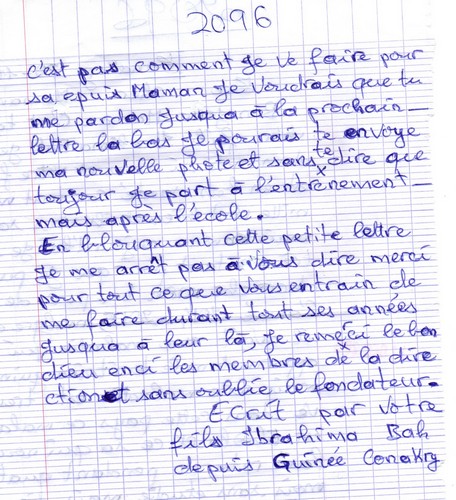 2096
c'est pas comment je ve faire pour
sa, epuis Maman je voudrais que tu
me pardon jusqua à la prochain
lettre la bas je pourais te envoye
ma nouvelle photo et sans te dire que
toujour je part à l'entrênement
mais après l'ecole.
En blouquant cette petite lettre
je me arrêt pas à vous dire merci
pour tout ce que vous entrain de
me faire durant tout ses années
jusqua à leur là, je remerci le bon
dieu enci les membres de la dire
ction et sans oublie le fondateur.
Ecrit par votre
fils Ibrahima Bah
depuis Guinée Conakry